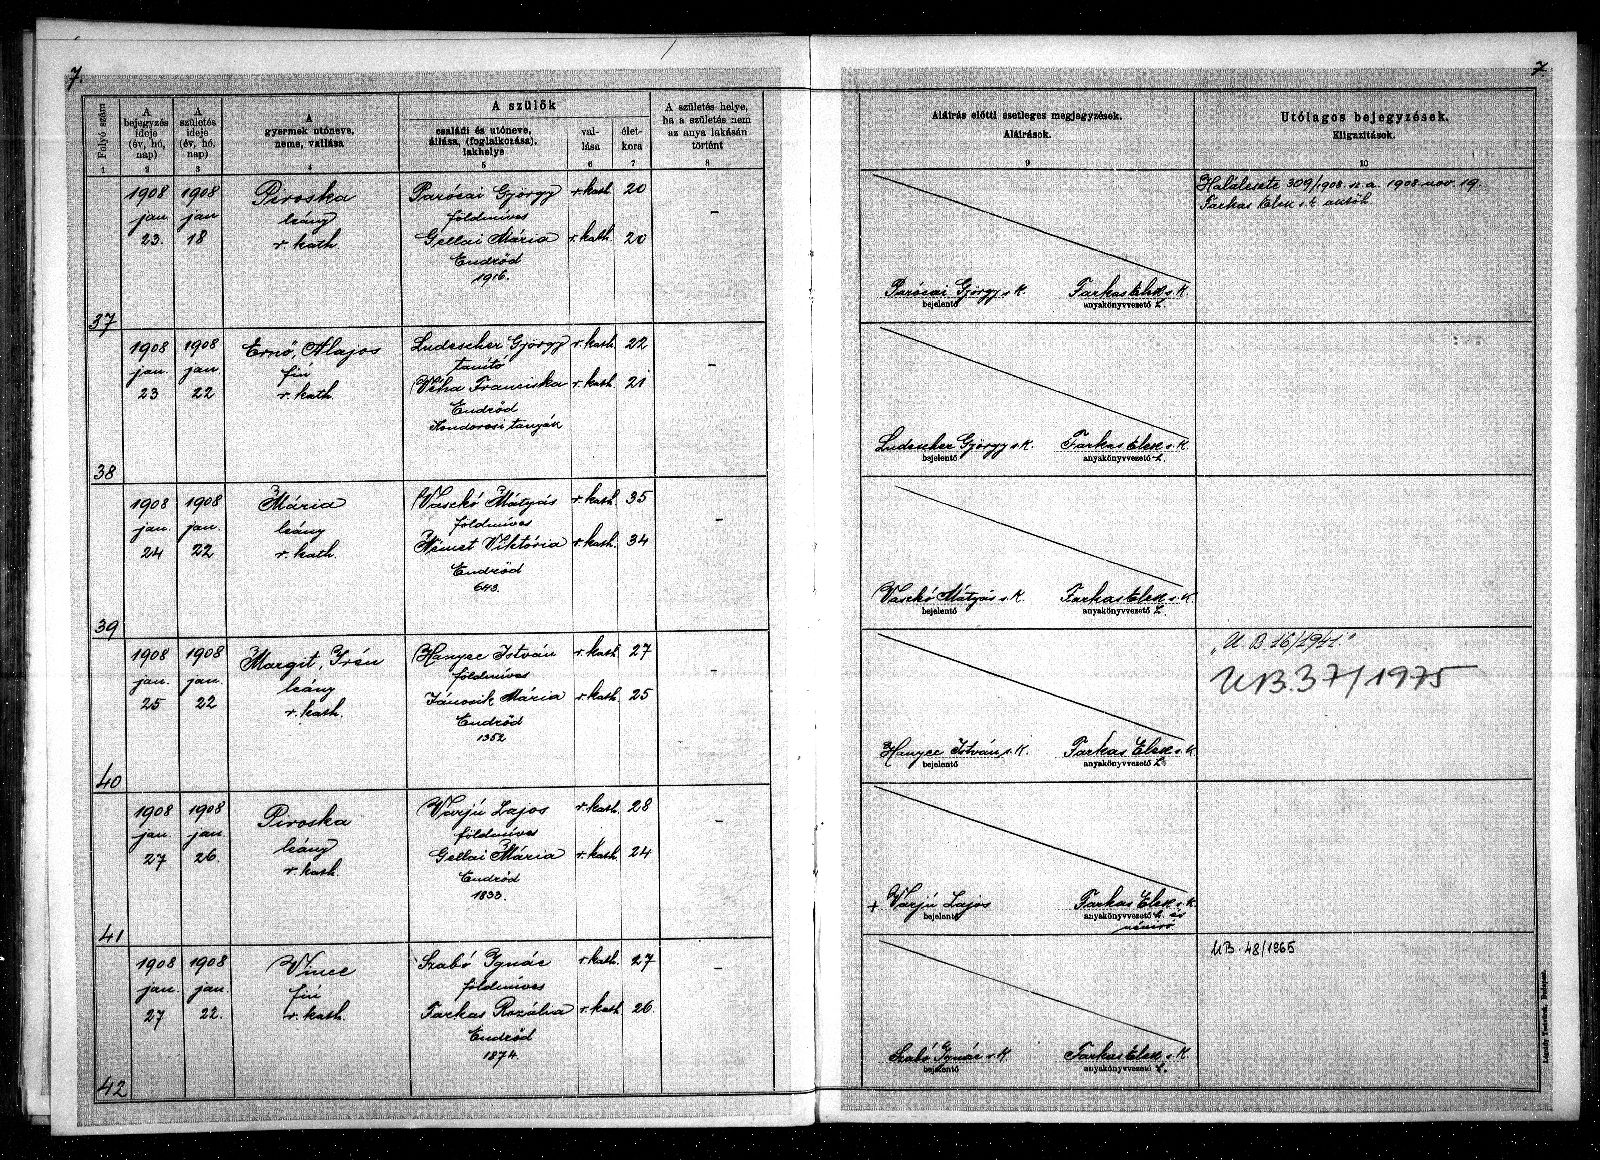 7.
7
Folyó szám
A bejegyzés ideje (év, hó, nap)
A születés ideje (év, hó, nap)
A gyermek utóneve, neme, vallása
A szülők
családi és utóneve, állása, (foglalkozása), lakhelye
val-lása
élet-kora
A születés helye, ha a születés nem az anya lakásán történt
Aláírás előtti esetleges megjegyzések.
Aláírások.
Utólagos bejegyzések.
Kiigazítások.
1 2 3 4 5 6 7 8 9 10
37
1908 jan 23.
1908 jan 18
Piroska
leány
r. kath.
Parócai György r. kath. 20
földmíves
Gellai Mária r. kath. 20
Endrőd
1916.
–
Parócai György s. k.
bejelentő
Farkas Elek s. k.
anyakönyvvezető h.
Halálesete 309/1908. sz. a. 1908. nov. 19.
Farkas Elek s. k. aakvh.
38
1908 jan 23
1908 jan 22
Ernő, Alajos
fiú
r. kath.
Ludescher György r. kath. 22
tanító
Véha Franciska r. kath. 21
Endrőd
Kondorosi tanyák
–
Ludescher György s. k.
bejelentő
Farkas Elek s. k.
anyakönyvvezető h.
39
1908 jan. 24
1908 jan. 22
Mária
leány
r. kath.
Vaskó Mátyás r. kath. 35
földmíves
Német Viktória r. kath. 34
Endrőd
643.
–
Vaskó Mátyás s. k.
bejelentő
Farkas Elek s. k.
anyakönyvvezető h.
40
1908 jan. 25
1908 jan. 22
Margit, Irén
leány
r. kath.
Hanyec István r. kath. 27
földmíves
Jánovik Mária r. kath. 25
Endrőd
1352
–
Hanyec István s. k.
bejelentő
Farkas Elek s. k.
anyakönyvvezető h.
„U. B. 16/1941"
UB. 37/1975
41
1908 jan. 27
1908 jan. 26
Piroska
leány
r. kath.
Varjú Lajos r. kath. 28
földmíves
Gellai Mária r. kath. 24
Endrőd
1833.
–
+ Varjú Lajos
bejelentő
Farkas Elek s. k.
anyakönyvvezető h. és
névíró
42
1908 jan. 27
1908 jan. 22.
Vince
fiú
r. kath.
Szabó Ignác r. kath. 27
földmíves
Farkas Rozália r. kath. 26
Endrőd
1874.
–
Szabó Ignác s. k.
bejelentő
Farkas Elek s. k.
anyakönyvvezető h.
UB. 48/1965